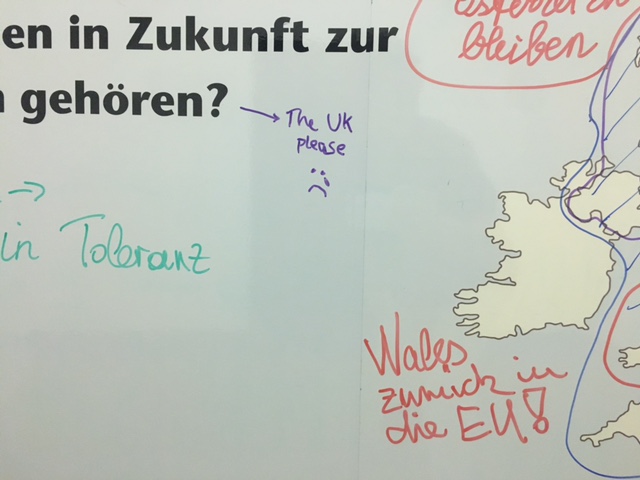 en in Zukunft zur
gehören?
The UK
please
bleiben
in Toleranz
Wales
zurück in
die EU!